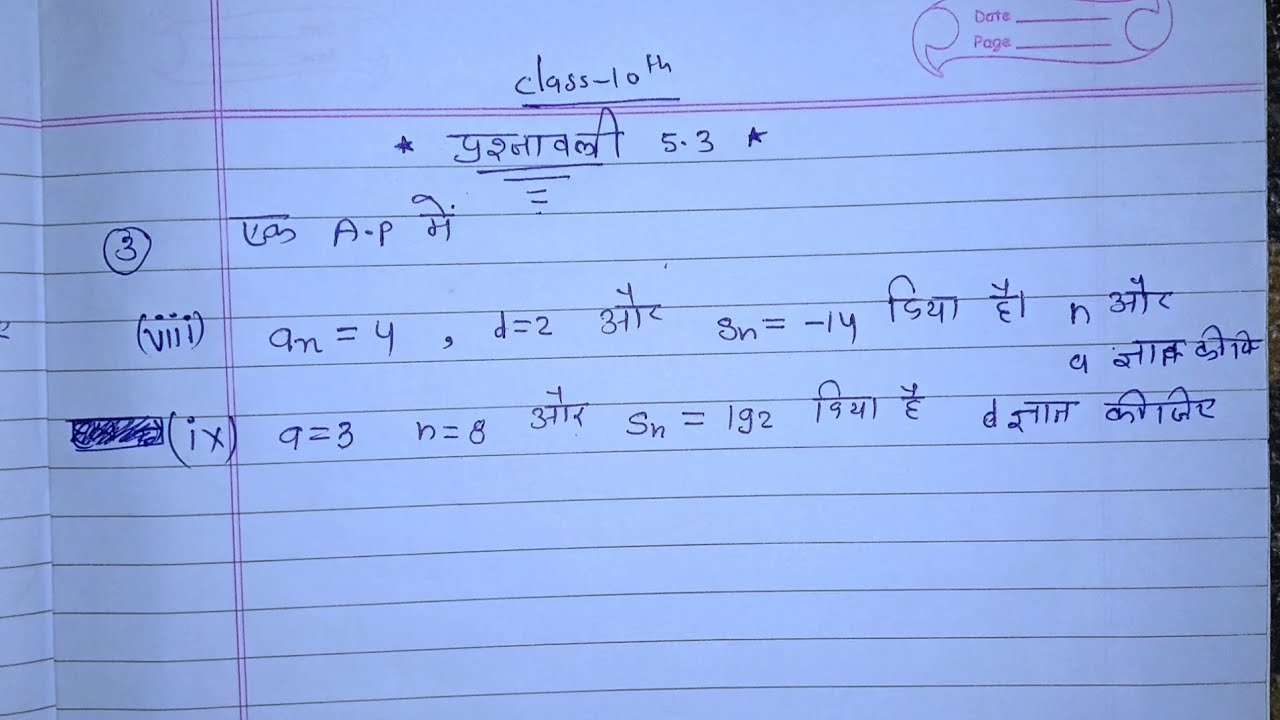 Date
Page
class-10th
* प्रश्नावली 5.3 *
③ एक A.P में
(viii) an = 4 , d=2 और Sn = -14 दिया है। n और
a ज्ञात कीजि
(ix) a=3 n=8 और Sn = 192 दिया है d ज्ञात कीजिए